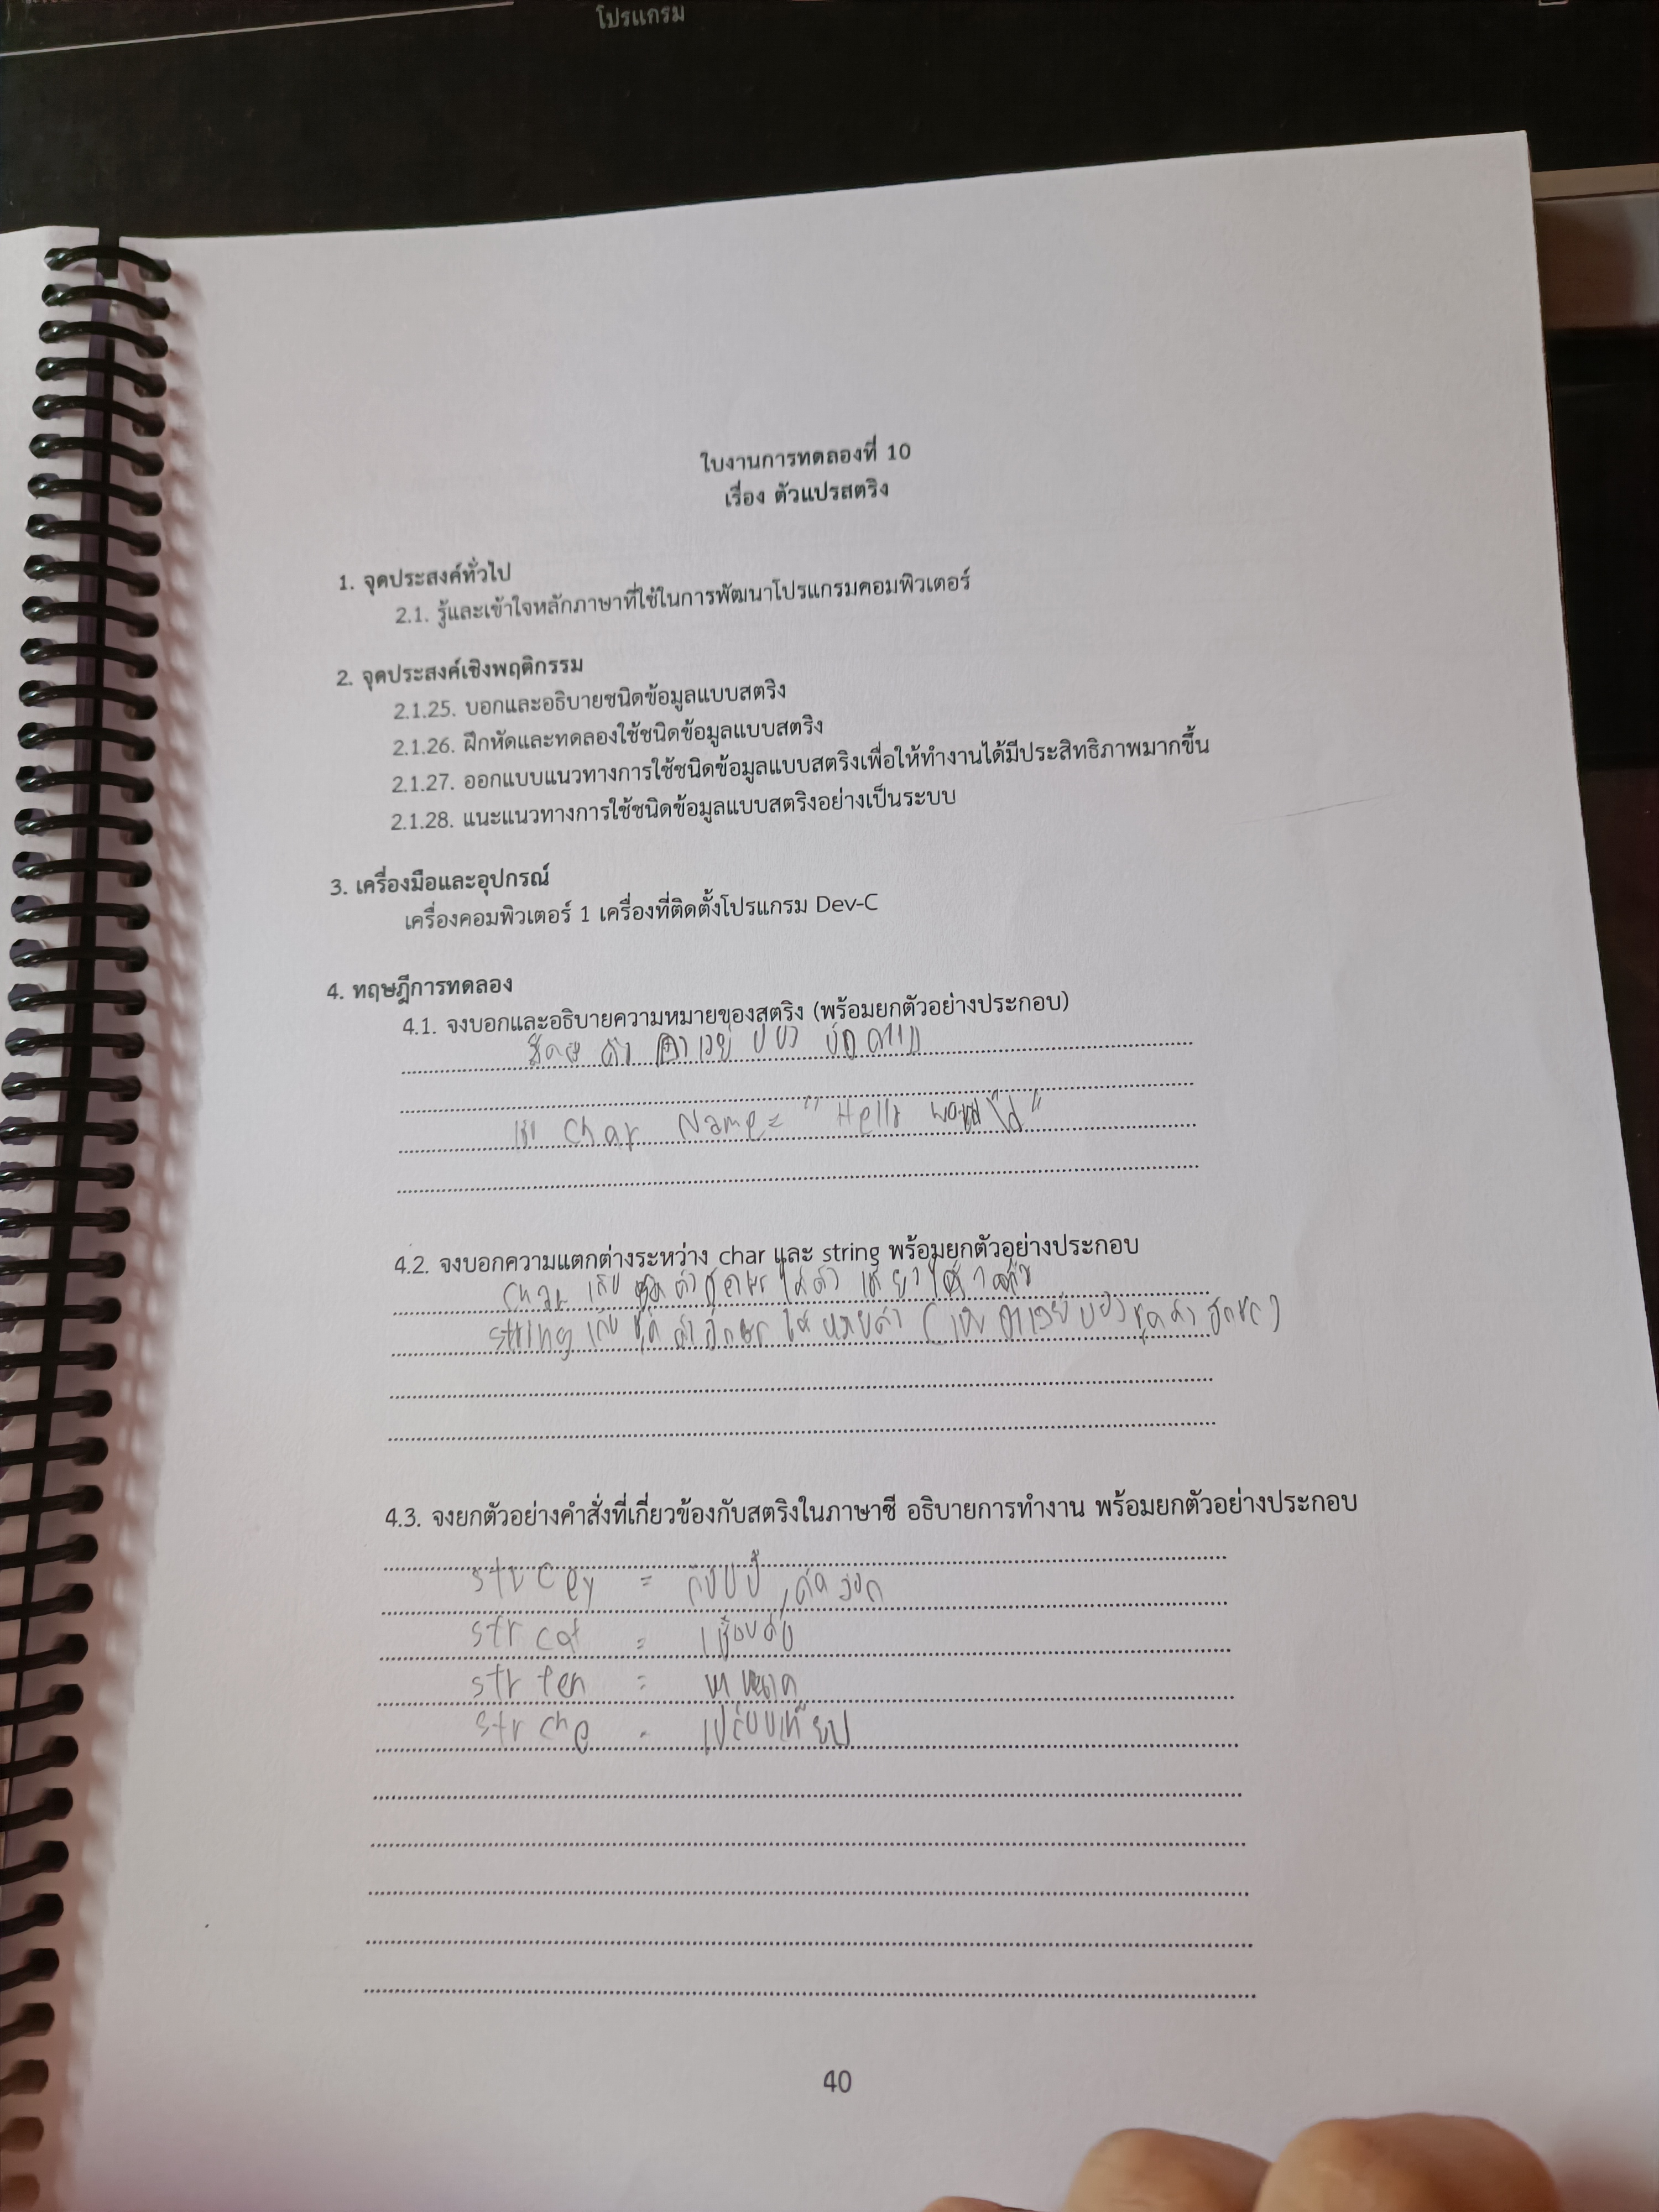 โปรแกรม
ใบงานการทดลองที่ 10
เรื่อง ตัวแปรสตริง
1. จุดประสงค์ทั่วไป
2.1. รู้และเข้าใจหลักภาษาที่ใช้ในการพัฒนาโปรแกรมคอมพิวเตอร์
2. จุดประสงค์เชิงพฤติกรรม
2.1.25. บอกและอธิบายชนิดข้อมูลแบบสตริง
2.1.26. ฝึกหัดและทดลองใช้ชนิดข้อมูลแบบสตริง
2.1.27. ออกแบบแนวทางการใช้ชนิดข้อมูลแบบสตริงเพื่อให้ทำงานได้มีประสิทธิภาพมากขึ้น
2.1.28. แนะแนวทางการใช้ชนิดข้อมูลแบบสตริงอย่างเป็นระบบ
3. เครื่องมือและอุปกรณ์
เครื่องคอมพิวเตอร์ 1 เครื่องที่ติดตั้งโปรแกรม Dev-C
4. ทฤษฎีการทดลอง
4.1. จงบอกและอธิบายความหมายของสตริง (พร้อมยกตัวอย่างประกอบ)
อาเรย์ ของ
Char Name = " Hello
4.2. จงบอกความแตกต่างระหว่าง char และ string พร้อมยกตัวอย่างประกอบ
char เก็บ ตัวอักษร ได้ตัว เดียว
string เก็บ ชุด ตัวอักษร ได้ หลายตัว ( เป็น อาเรย์ ของ ชุด ตัว อักษร )
4.3. จงยกตัวอย่างคำสั่งที่เกี่ยวข้องกับสตริงในภาษาซี อธิบายการทำงาน พร้อมยกตัวอย่างประกอบ
= ก๊อปปี้ , คัดลอก
strcat = เชื่อมต่อ
strlen =
= เปรียบเทียบ
40